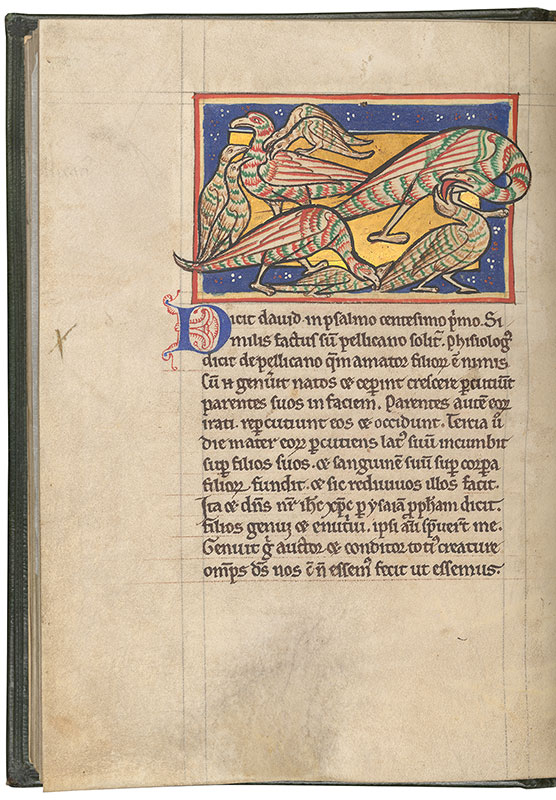 Dicit dauid in psalmo centesimo p̄mo. Si
milis factus sū pellicano solit̄. Phisiolog᷒
dicit de pellicano qm̄ amator filior̄ ē nimis
cū ń genuit natos ⁊ ceperint crescere ꝑcutiunt
parentes suos in faciem. Parentes autē eoꝝ
irati. reꝑcutiunt eos ⁊ occidunt. Tercia ū
die mater eoꝝ ꝑcutiens lat᷒ suū incumbit
suꝑ filios suos. ⁊ sanguinē suū suꝑ corꝑa
filioꝝ fundit. ⁊ sic rediuiuos illos facit.
Ita ⁊ dn̄s nr̄ ihc̄ xp̄c ꝑ ysaiā ꝓpham dicit.
filios genui ⁊ enutriui. ipsi aū spreuer̄t me.
Genuit ḡ auctor ⁊ conditor toti᷒ creature
omp̄s ds̄ nos ⁊ cū ń essem᷒ fecit ut essemus.